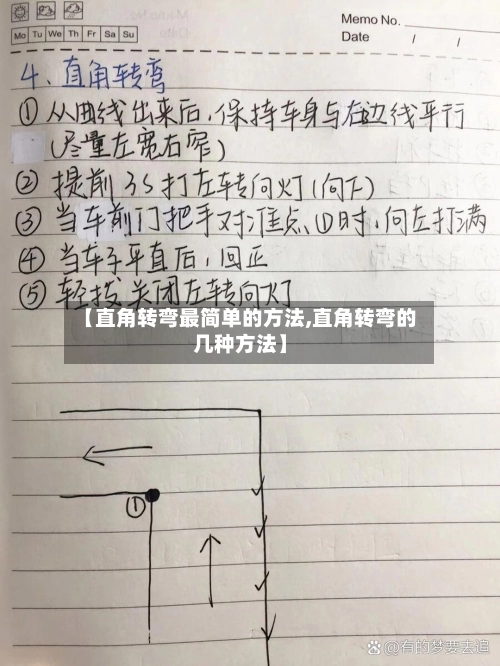 Memo No.
Mo Tu We Th Fr Sa Su
Date / /
4、直角转弯
① 从曲线出来后，保持车身与右边线平行
(尽量左宽右窄)
② 提前3S打左转向灯(向下)
③ 当车前门把手对准点①时，向左打满
④ 当车子平直后，回正
⑤ 轻拔关闭左转向灯
【直角转弯最简单的方法,直角转弯的
几种方法】
①
@有的梦要去追